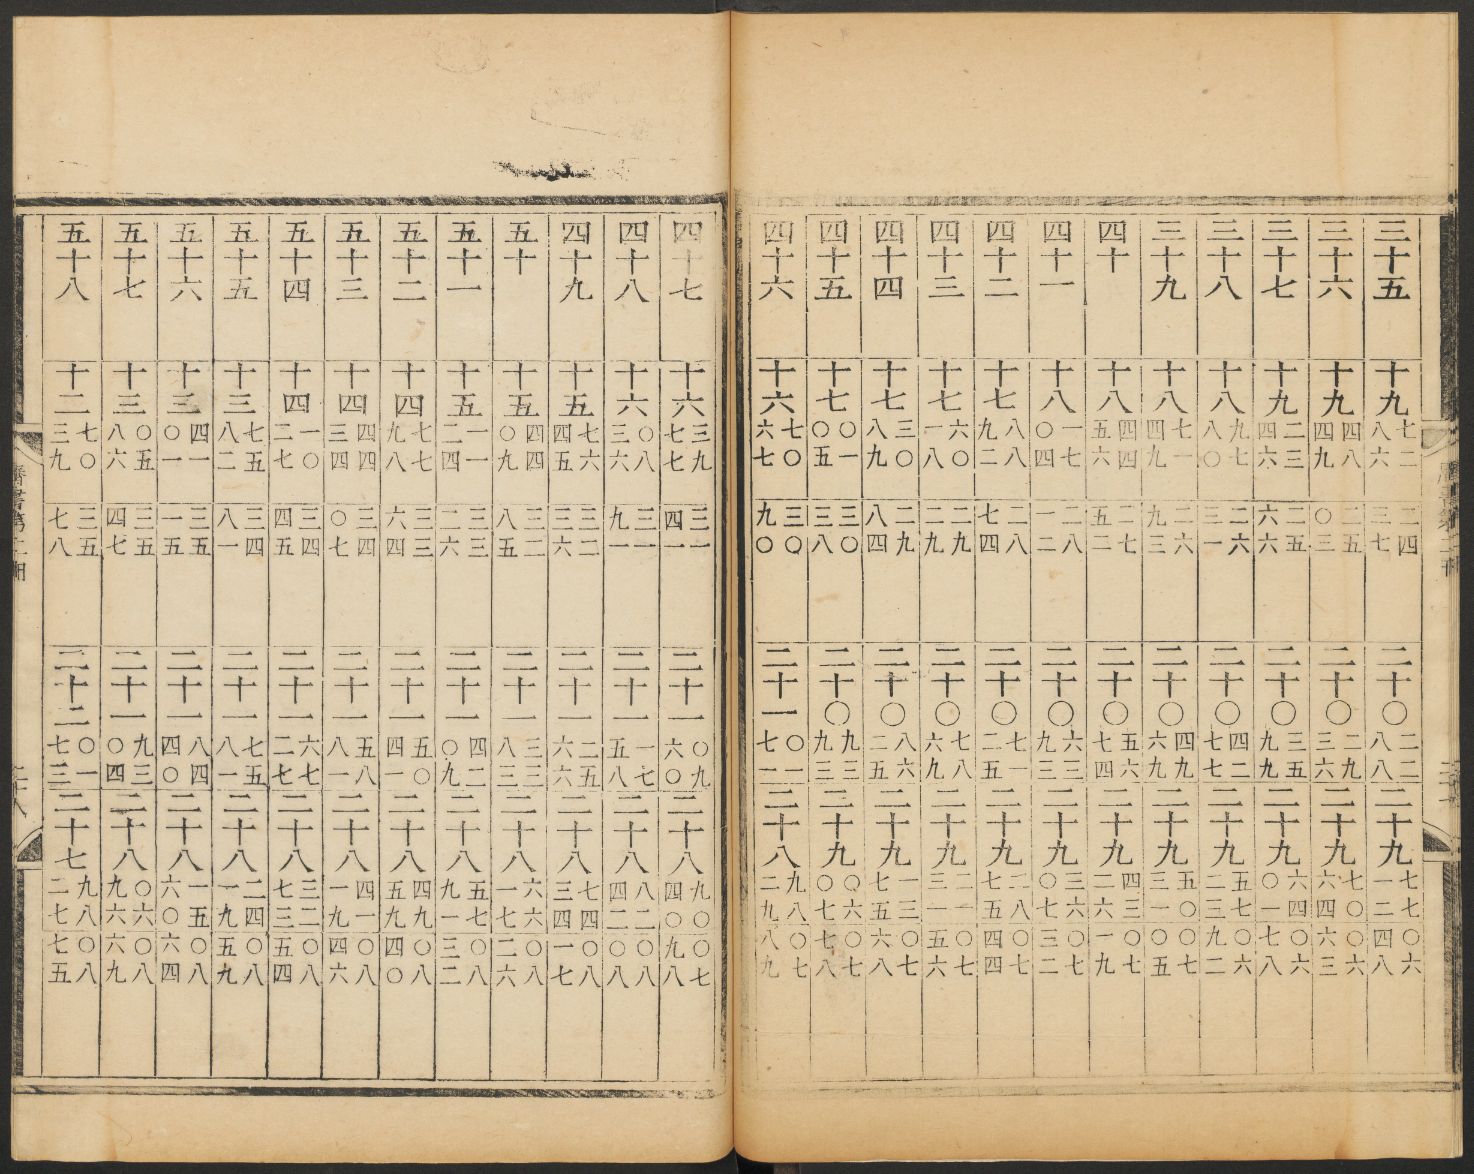 三十五 十九七二八六 二四三七 二十〇二二八八 二十九七七一二 〇六四八
三十六 十九四八四九 二五〇三 二十〇二九三六 二十九七〇六四 〇六六三
三十七 十九二三四六 二五六六 二十〇三五九九 二十九六四〇一 〇六七八
三十八 十八九七八〇 二六三一 二十〇四二七七 二十九五七二三 〇六九二
三十九 十八七一四九 二六九三 二十〇四九六九 二十九五〇三一 〇七〇五
四十 十八四四五六 二七五二 二十〇五六七四 二十九四三二六 〇七一九
四十一 十八一七〇四 二八一二 二十〇六三九三 二十九三六〇七 〇七三二
四十二 十七八八九二 二八七四 二十〇七一二五 二十九二八七五 〇七四四
四十三 十七六〇一八 二九二九 二十〇七八六九 二十九二一三一 〇七五六
四十四 十七三〇八九 二九八四 二十〇八六二五 二十九一三七五 〇七六八
四十五 十七〇一〇五 三〇三八 二十〇九三九三 二十九〇六〇七 〇七七八
四十六 十六七〇六七 三〇九〇 二十一〇一七一 二十八九八二九 〇七八九
四十七 十六三九七七 三一四一 二十一〇九六〇 二十八九〇四〇 〇七九八
四十八 十六〇八三六 三一九一 二十一一七五八 二十八八二四二 〇八〇八
四十九 十五七六四五 三二三六 二十一二五六六 二十八七四三四 〇八一七
五十 十五四四〇九 三二八五 二十一三三八三 二十八六六一七 〇八二六
五十一 十五一一二四 三三二六 二十一四二〇九 二十八五七九一 〇八三二
五十二 十四七七九八 三三六四 二十一五〇四一 二十八四九五九 〇八四〇
五十三 十四四四三四 三四〇七 二十一五八八一 二十八四一一九 〇八四六
五十四 十四一〇二七 三四四五 二十一六七二七 二十八三二七三 〇八五四
五十五 十三七五八二 三四八一 二十一七五八一 二十八二四一九 〇八五九
五十六 十三四一〇一 三五一五 二十一八四四〇 二十八一五六〇 〇八六四
五十七 十三〇五八六 三五四七 二十一九三〇四 二十八〇六九六 〇八六九
五十八 十二七〇三九 三五七八 二十二〇一七三 二十七九八二七 〇八七五